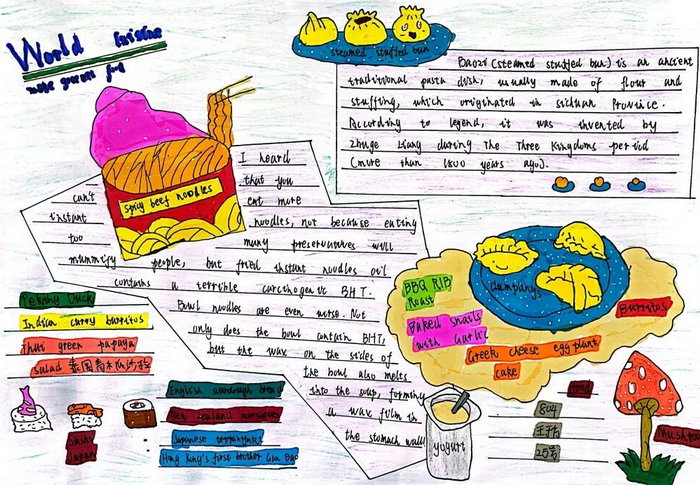 World Cuisine
make gourmet food
steamed stuffed bun
Baozi (steamed stuffed bun) is an ancient
traditional pasta dish, usually made of flour and
stuffing, which originated in sichuan Province.
According to legend, it was invented by
Zhuge Liang during The Three Kingdoms period
(more than 1800 years ago).
spicy beef noodles
I heard
that you
can't eat more
instant noodles, not because eating
too many preservatives will
mummify people, but fried instant noodles oil
contains a terrible carcinogenic BHT.
Bowl noodles are even worse. Not
only does the bowl contain BHT,
but the wax on the sides of
the bowl also melts
into the soup, forming
a wax film in
the stomach wall
dumplings
BBQ RIB
Roast
Baked snails
with Garlic
Burritos
Greek cheese eggplant
cake
Peking Duck
Indian curry burritos
Thai green papaya
salad 泰国青木瓜沙拉
Sushi
Japan
English sourdough bread
New zealand
Japanese teppanyaki
Hong Kong's first Mother Can Bao
yogurt
food
804
25号
Mushroom